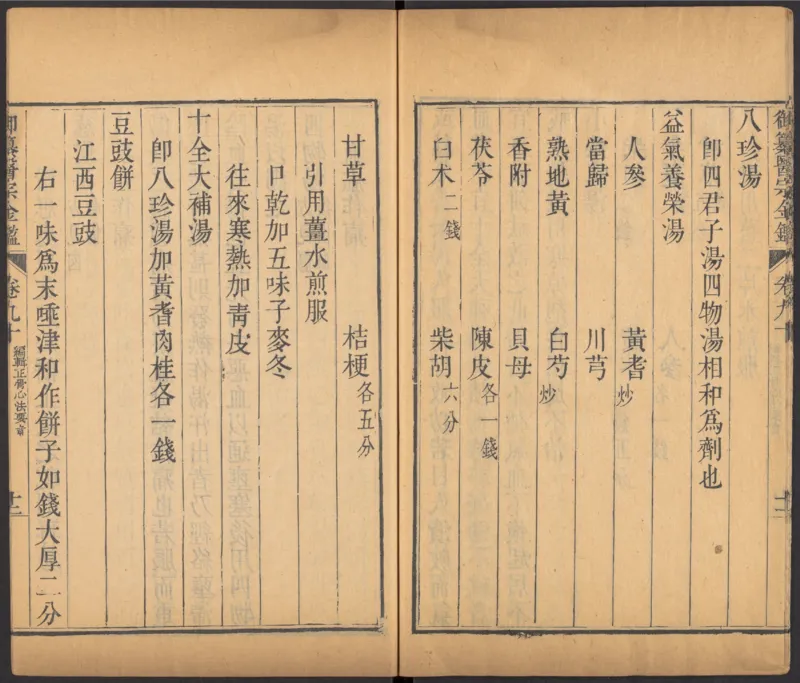 八珍湯
卽四君子湯四物湯相和爲劑也
益氣養榮湯
人參 黃耆炒
當歸 川芎
熟地黃 白芍炒
香附 貝母
茯苓 陳皮各一錢
白术二錢 柴胡六分
甘草 桔梗各五分
引用薑水煎服
口乾加五味子麥冬
往來寒熱加青皮
十全大補湯
卽八珍湯加黃耆肉桂各一錢
豆豉餅
江西豆豉
右一味爲末唾津和作餅子如錢大厚二分
御纂醫宗金鑑 卷九十 編輯正骨心法要旨